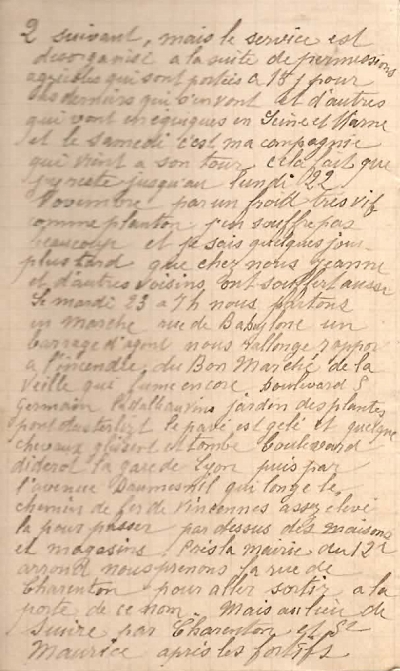 2 suivant, mais le service est
desorganisé a la suite de permissions
agricoles qui sont portées a 18 j pour
les derniers qui s'en vont et d'autres
qui vont en equipes en Seine et Marne
et le samedi c'est ma compagnie
qui vient a son tour cela fait que
j'y reste jusqu'au lundi 22
Novembre par un froid très vif
comme planton j'en souffre pas
beaucoup et je sais quelques jours
plus tard que chez nous Jeanne
et d'autres voisins ont souffert aussi
Le mardi 23 a 7h nous partons
en marche rue de Babylone un
barrage d'agent nous rallonge rapport
a l'incendie du Bon Marché de la
veille qui fume encore boulevard S
Germain la Halle aux vins jardin des plantes
pont d'austerlitz le pavé est gelé et quelque
chevaux glissent et tombe boulevard
diderot la gare de Lyon puis par
l'avenue Daumesnil qui longe le
chemin de fer de Vincennes assez élevé
la pour passer par dessus des maisons
et magasins Près la mairie du 12e
arrond nous prenons la rue de
Charenton pour aller sortir a la
porte de ce nom Mais au lieu de
suivre par Charenton et St
Maurice après les fortifs